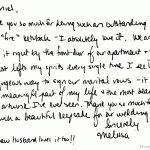 you so much for being such an outstanding
"fire" ketubah – I absolutely love it. We are
it right by the front door of our apartment &
lifts my spirits every single time I see
way to sign our marital vows – it
meaningful part of my life & the most
artwork I've ever seen. Thank you so much for
such a beautiful keepsake for our wedding
Sincerely
Melissa
new husband loves it too!!